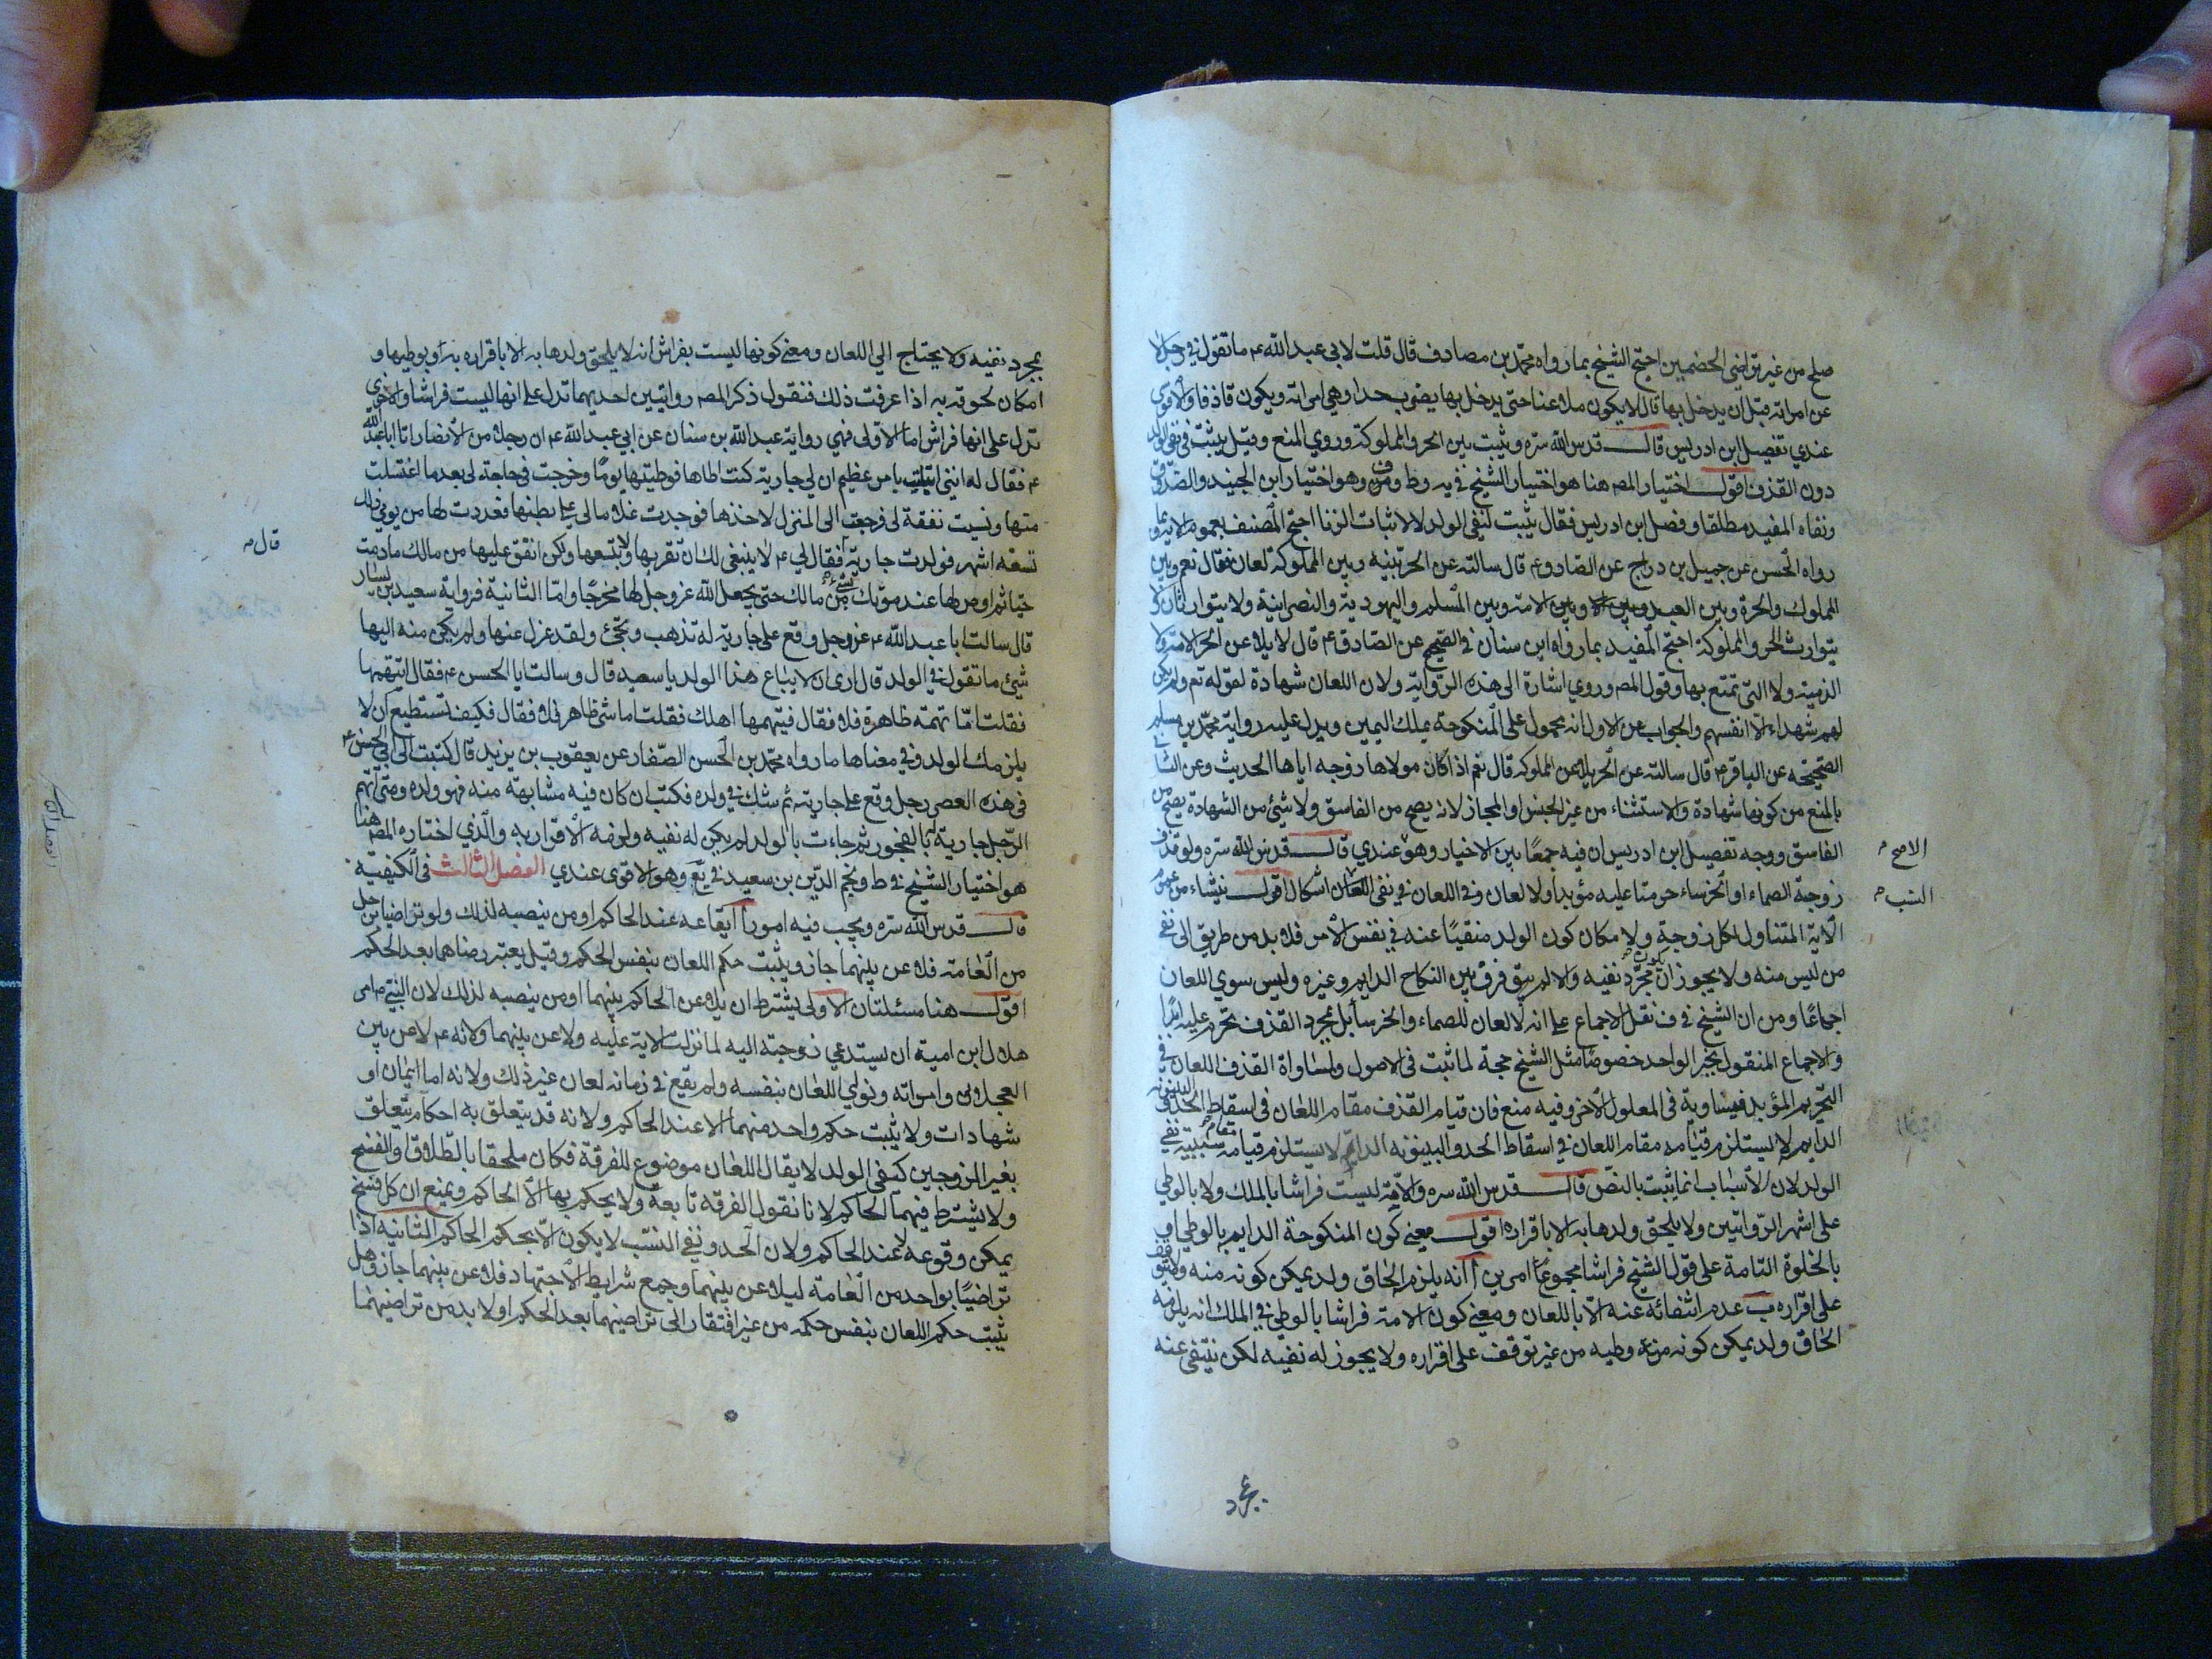 صلح من غير تراضي الخصمين احتج الشيخ بما رواه محمد بن مصادف قال قلت لابي عبد الله ع ما تقول في رجل لاعن
عن امراته قبل ان يدخل بها قال لا يكون ملاعنا حتى يدخل بها يضرب حدا وهي امراته ويكون قاذفا والاقوى
عندي تفصيل ابن ادريس قال قدس الله سره ويثبت بين الحر والمملوكة وروي المنع وقيل يثبت في نفي الولد
دون القذف اقول اختيار المص هنا هو اختيار الشيخ في يه وط وف وهو اختيار ابن الجنيد والصدوق
ونفاه المفيد مطلقا وفصل ابن ادريس فقال يثبت لنفي الولد لا لاثبات الزنا احتج المصنف بعموم الاية وبما
رواه الحسن عن جميل بن دراج عن الصادق ع قال سالته عن الحر بينه وبين المملوكة لعان فقال نعم وبين
المملوك والحرة وبين العبد وبين الامة وبين المسلم واليهودية والنصرانية ولا يتوارثان ولا
يتوارث الحر والمملوكة احتج المفيد بما رواه ابن سنان في الصحيح عن الصادق ع قال لا يلاعن الحر الامة ولا
الذمية ولا التي تمتع بها وقول المص وروي اشارة الى هذه الرواية ولان اللعان شهادة لقوله تع ولم يكن
لهم شهداء الا انفسهم والجواب عن الاول انه محمول على المنكوحة بملك اليمين ويدل عليه رواية محمد بن مسلم
الصحيحة عن الباقر ع قال سالته عن الحر يلاعن المملوكة قال نعم اذا كان مولاها زوجه اياها الحديث وعن الثاني
بالمنع من كونها شهادة والاستثناء من غير الجنس او المجاز لانه يصح من الفاسق ولا شيء من الشهادة يصح من
الفاسق ووجه تفصيل ابن ادريس ان فيه جمعا بين الاخبار وهو عندي قال قدس الله سره ولو قذف
الاصح
زوجة الصماء او الخرساء حرمتا عليه مؤبدا ولا لعان وفي اللعان في نفي اشكال اقول ينشاء من عموم
النسب
الاية المتناول لكل زوجة ولامكان كون الولد منفيا عنه في نفس الامر فلا بد من طريق الى نفي
من ليس منه ولا يجوز ان يكون مجرد نفيه والا لم يبق فرق بين النكاح الدايم وغيره وليس سوي اللعان
اجماعا ومن ان الشيخ في ف نقل الاجماع على انه لا لعان للصماء والخرسا بل بمجرد القذف تحرم عليه ابدا
والاجماع المنقول بخبر الواحد خصوصا مثل الشيخ حجة لما ثبت في الاصول ولمساواة القذف اللعان في
التحريم المؤبد فيساويه في المعلول الاخر وفيه منع فان قيام القذف مقام اللعان في اسقاط الحد والبينونه
الدايم لا يستلزم قيامه مقام اللعان في اسقاط الحد والبينونه الدايم لا يستلزم قيامه مقام سببية نفي
الولد لان الاسباب انما يثبت بالنص قال قدس الله سره والامة ليست فراشا بالملك ولا بالوطي
على اشهر الروايتين ولا يلحق ولدها به الا باقراره اقول معنى كون المنكوحة الدايم بالوطي او
بالخلوة التامة على قول الشيخ فراشا مجموع امرين أ انه يلزم الحاق ولد يمكن كونه منه ولا يتوقف
على اقراره ب عدم انتفائه عنه الا باللعان ومعنى كون الامة فراشا بالوطي في الملك انه يلزمه
الحاق ولد يمكن كونه من وطيه من غير توقف على اقراره ولا يجوز له نفيه لكن ينتفي عنه
بمجرد نفيه ولا يحتاج الي اللعان ومعنى كونها ليست بفراش انه لا يلحق ولدها به الا باقراره به او بوطيها و
امكان لحوقه به اذا عرفت ذلك فنقول ذكر المص روايتين احديهما تدل على انها ليست فراشا والاخرى
تدل على انها فراش اما الاولى فهي رواية عبد الله بن سنان عن ابي عبد الله ع ان رجلا من الانصار اتا ابا عبد الله
ع فقال له انني ابتليت بامر عظيم ان لي جارية كنت اطاها فوطيتها يوما وخرجت في حاجة لي بعد ما اغتسلت
منها ونسيت نفقة لي فرجعت الى المنزل لاخذها فوجدت غلاما لي على بطنها فعددت لها من يومي ذلك
تسعة اشهر فولدت جارية فقال لي ع لا ينبغي لك ان تقربها ولا تبيعها ولكن انفق عليها من مالك مادمت
قال
حيا ثم اوص لها عند موتك بشيء من مالك حتى يجعل الله عز وجل لها مخرجا واما الثانية فرواية سعيد بن يسار
قال سالت ابا عبد الله ع عن رجل وقع على جارية له تذهب وتجيء ولقد عزل عنها ولم يكن منه اليها
شيء ما تقول في الولد قال ارى ان لا يباع هذا الولد يا سعيد قال وسالت ابا الحسن ع فقال ايتهمها
فقلت اما تهمة ظاهرة فلا فقال فيتهمها اهلك فقلت اما شي ظاهر فلا فقال فكيف تستطيع ان لا
يلزمك الولد وفي معناها ما رواه محمد بن الحسن الصفار عن يعقوب بن يزيد قال كتبت الى ابي الحسن ع
في هذه العصر رجل وقع على جارية ثم شك في ولده فكتب ان كان فيه مشابهة منه فهو ولده ومتى اتهم
الرجل جارية بالفجور ثم جاءت بالولد لم يكن له نفيه ولزمه الاقرار به والذي اختاره المص هنا
هو اختيار الشيخ في ط ونجم الدين بن سعيد في يع وهو الاقوى عندي الفصل الثالث في الكيفية
قال قدس الله سره ويجب فيه امور أ ايقاعه عند الحاكم او من ينصبه لذلك ولو تراضيا برجل
من العامة فلاعن بينهما جاز ويثبت حكم اللعان بنفس الحكم وقيل يعتبر رضاهما بعد الحكم
اقول هنا مسئلتان الاولى يشترط ان يلاعن الحاكم بينهما او من ينصبه لذلك لان النبي ص امر
هلال ابن امية ان يستدعي زوجته اليه لما نزلت الاية عليه ولاعن بينهما ولانه ع لاعن بين
العجلاني وامراته وتولي اللعان بنفسه ولم يقع في زمانه لعان غير ذلك ولانه اما ايمان او
شهادات ولا يثبت حكم واحد منهما الا عند الحاكم ولانه قد يتعلق به احكام يتعلق
بغير الزوجين كنفي الولد لا يقال اللعان موضوع للفرقة فكان ملحقا بالطلاق او الفسخ
ولا يشترط فيهما الحاكم لانا نقول الفرقه تابعة ولا يحكم بها الا الحاكم ويمنع ان كل فسخ
يمكن وقوعه لا عند الحاكم ولان الحد ونفي النسب لا يكون الا بحكم الحاكم الثانيه اذا
تراضيا بواحد من العامة ليلاعن بينهما وجمع شرايط الاجتهاد فلاعن بينهما جاز وهل
يثبت حكم اللعان بنفس حكمه من غير افتقار الى تراضيهما بعد الحكم او لا بد من تراضيهما